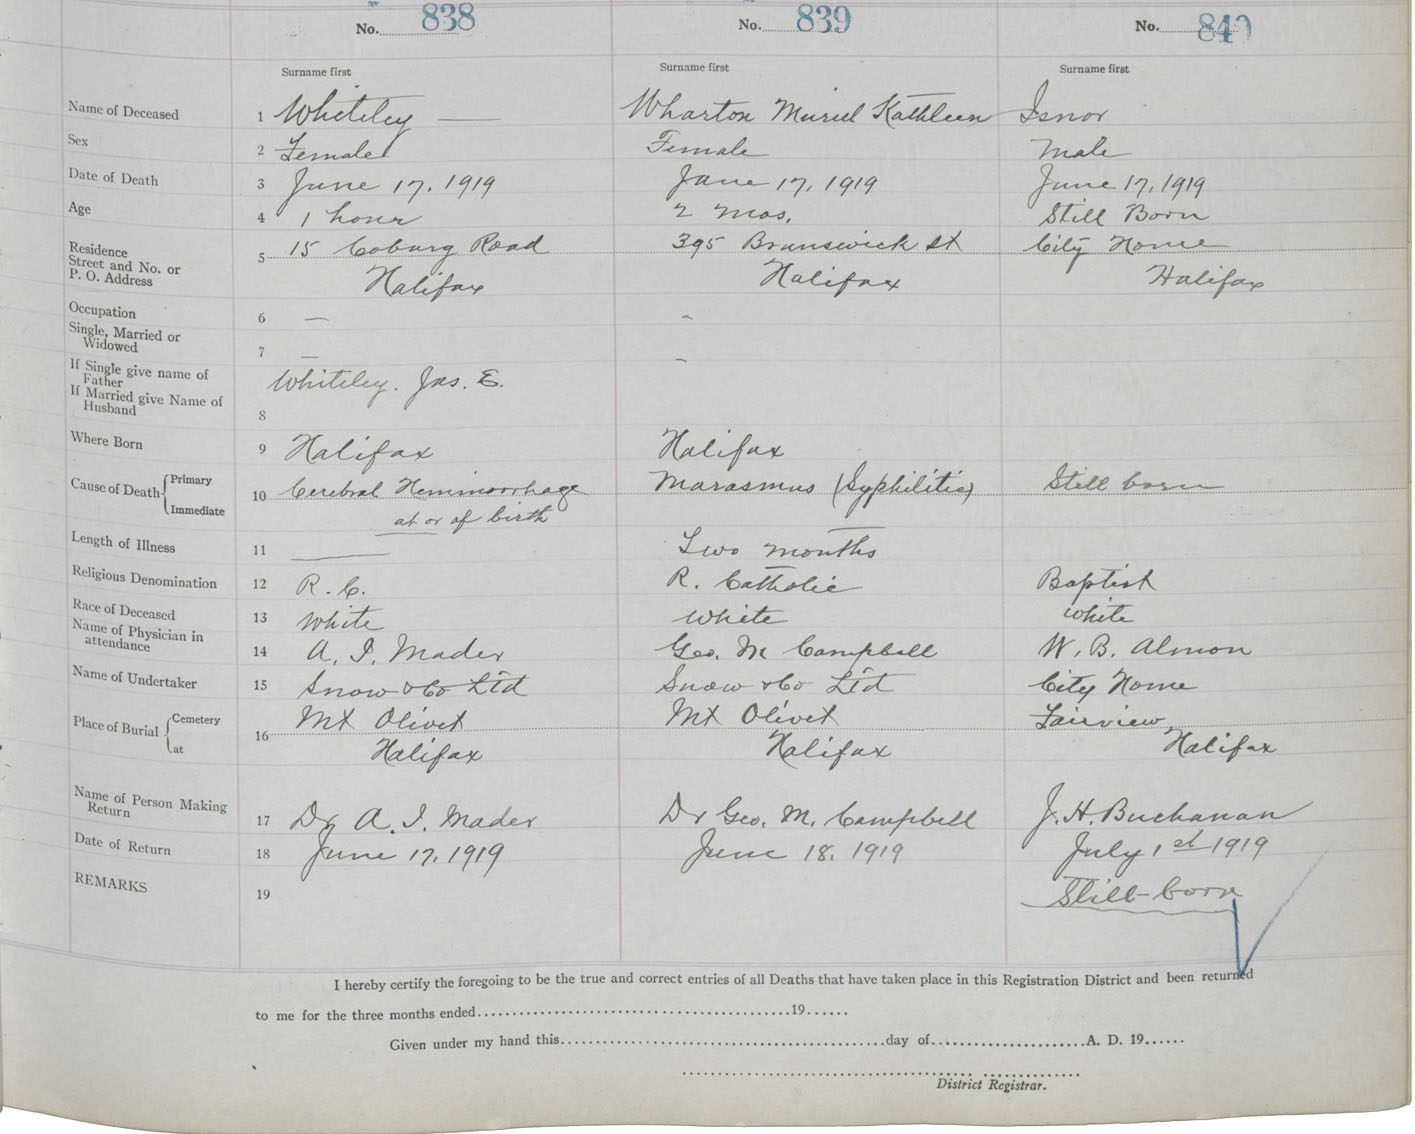 No. 838 No. 839 No. 840
Surname first Surname first Surname first
Name of Deceased 1 Whiteley — Wharton Muriel Kathleen Isnor
Sex 2 Female Female Male
Date of Death 3 June 17, 1919 June 17, 1919 June 17, 1919
Age 4 1 hour 2 mos. Still Born
Residence
Street and No. or
P. O. Address
5 15 Coburg Road 395 Brunswick St City Home
Halifax Halifax Halifax
Occupation 6 — -
Single, Married or
Widowed
7 — -
If Single give name of
Father
Whiteley. Jas. E.
If Married give Name of
Husband
8
Where Born 9 Halifax Halifax
Cause of Death Primary
Immediate
10 Cerebral Hemmorrhage Marasmus (Syphilitic) Still born
at or of birth
Length of Illness 11 — Two months
Religious Denomination 12 R. C. R. Catholic Baptist
Race of Deceased 13 White White White
Name of Physician in
attendance
14 A. I. Mader Geo. M Campbell W. B. Almon
Name of Undertaker 15 Snow & Co Ltd Snow & Co Ltd City Home
Place of Burial Cemetery
at
16 Mt Olivet Mt Olivet Fairview
Halifax Halifax Halifax
Name of Person Making
Return
17 Dr A. I. Mader Dr Geo. M. Campbell J. H. Buchanan
Date of Return 18 June 17, 1919 June 18, 1919 July 1st 1919
REMARKS 19 Still-born
I hereby certify the foregoing to be the true and correct entries of all Deaths that have taken place in this Registration District and been returned
to me for the three months ended........................................19......
Given under my hand this..............................................day of......................A. D. 19......
District Registrar.